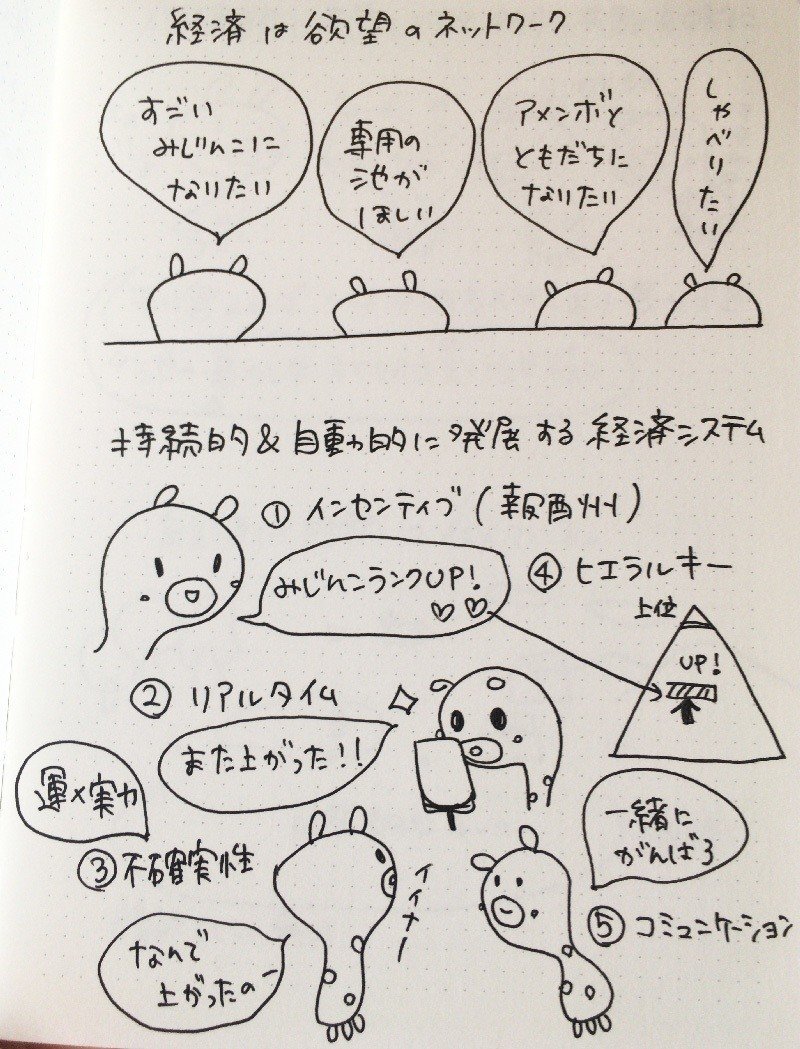 経済は欲望のネットワーク
すごい
みじんこに
なりたい
専用の
池が
ほしい
アメンボと
ともだちに
なりたい
しゃべりたい
持続的&自動的に発展する経済システム
① インセンティブ(報酬)
みじんこランクUP!
④ ヒエラルキー
上位
UP!
② リアルタイム
また上がった!!
運×実力
③ 不確実性
イイナー
なんで
上がったのー
一緒に
がんばろ
⑤ コミュニケーション